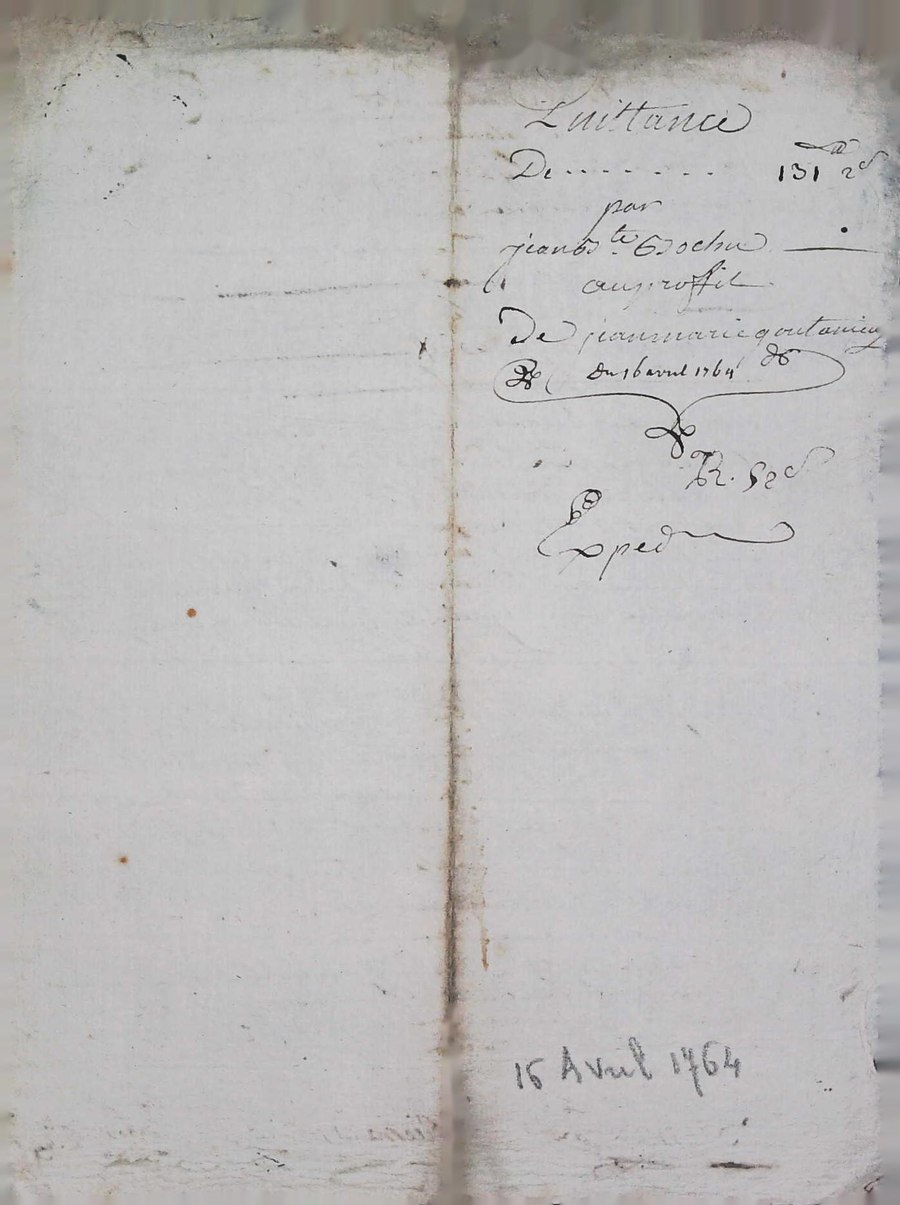 Quittance
De . . . . . . . . 131tt 2s
par
jean Bte Bochu
au proffit
De jean marie goutanieu
Du 16 avril 1764
R. 52s
Exped
16 Avril 1764